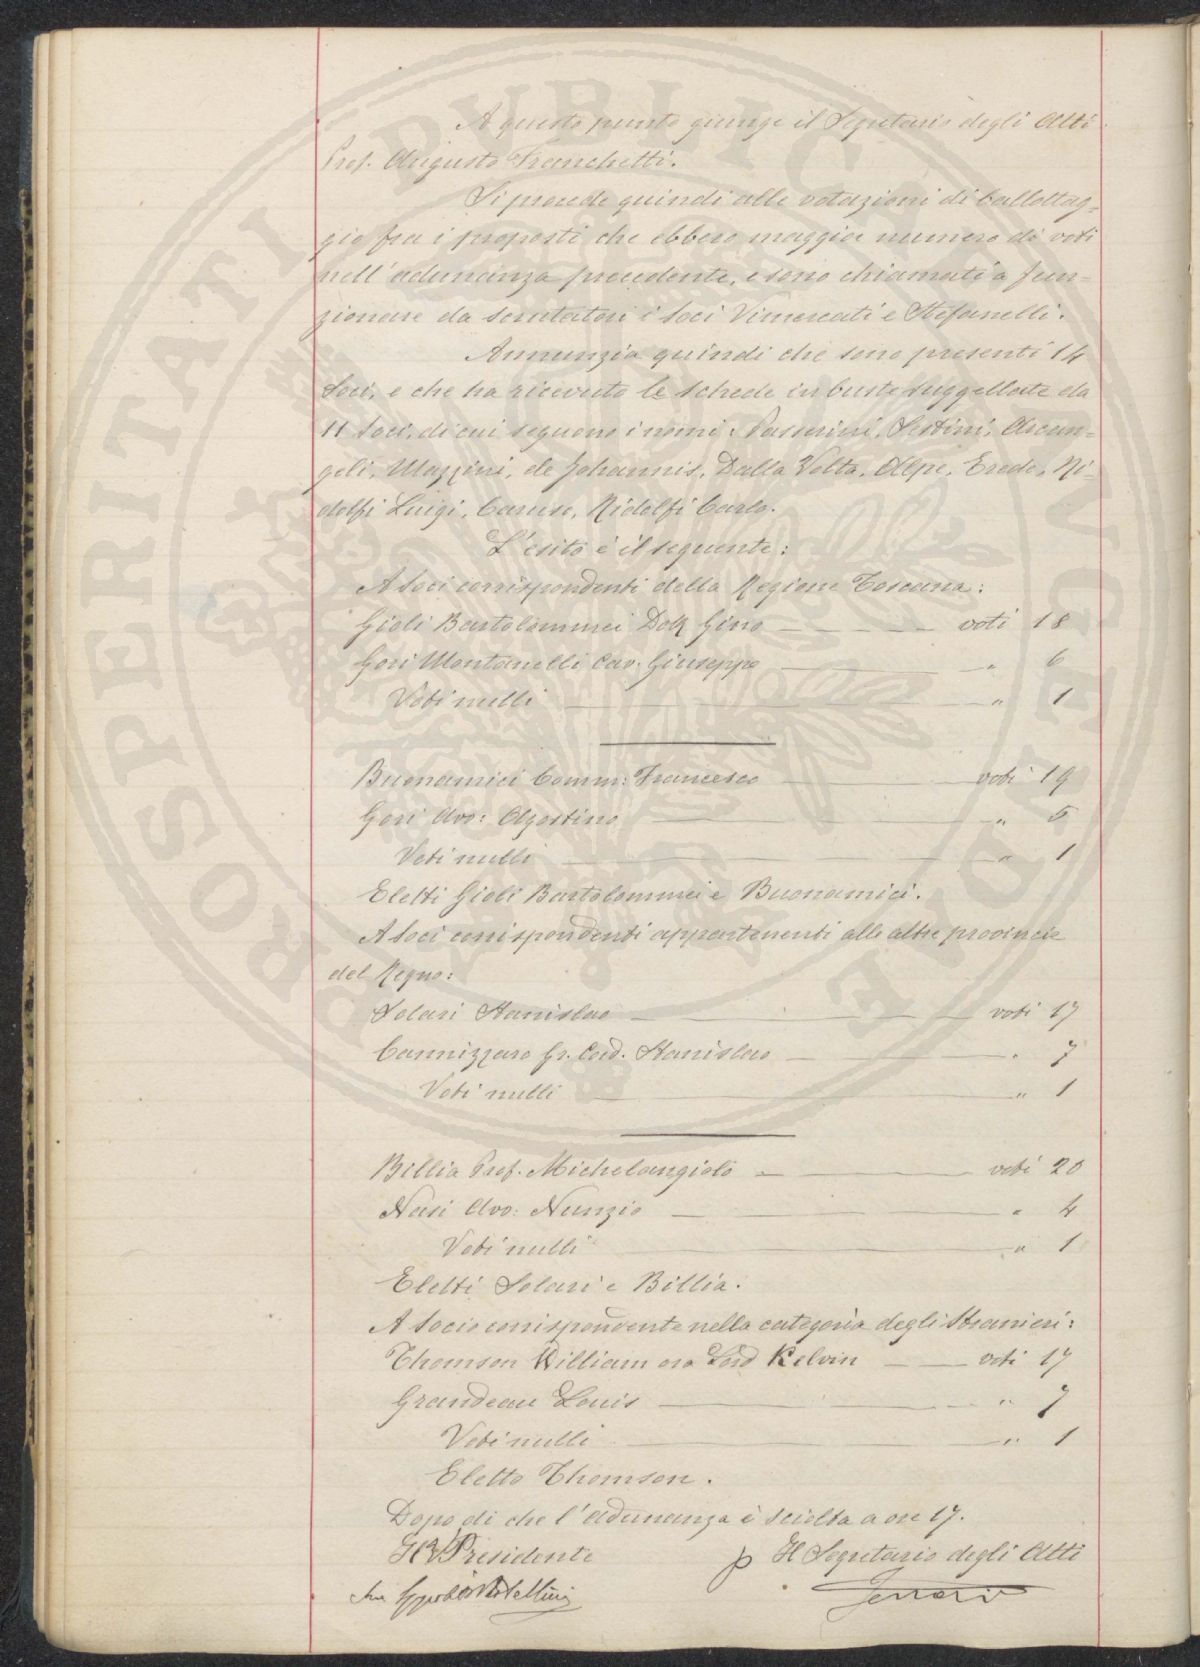 A questo punto giunge il Segretario degli Atti
Prof. Augusto Franchetti.
Si procede quindi alle votazioni di ballottag=
gio fra i proposti che ebbero maggior numero di voti
nell'adunanza precedente, e sono chiamati a fun=
zionare da scrutatori i Soci Vimercati e Stefanelli.
Annunzia quindi che sono presenti 14
Soci, e che ha ricevuto le schede in buste suggellate da
11 Soci, di cui seguono i nomi: Passerini, Sestini, Arcan=
geli, Mazzini, de Johannis, Dalla Volta, Alpe, Erede, Ri=
dolfi Luigi, Caruso, Ridolfi Carlo.
L'esito è il seguente:
A Soci corrispondenti della Regione Toscana:
Gioli Bartolommei Dott Gino voti 18
Gori Montanelli Cav. Giuseppe " 6
Voti nulli " 1
Buonamici Comm: Francesco voti 19
Gori Avv: Agostino " 5
Voti nulli " 1
Eletti Gioli Bartolommei e Buonamici.
A Soci corrispondenti appartenenti alle altre provincie
del Regno:
Solari Stanislao voti 17
Cannizzaro Gr. Cord. Stanislao " 7
Voti nulli " 1
Billia Prof. Michelangiolo voti 20
Nasi Avv: Nunzio " 4
Voti nulli " 1
Eletti Solari e Billia.
A Socio corrispondente nella categoria degli Stranieri:
Thomson William ora Lord Kelvin voti 17
Grandeau Louis " 7
Voti nulli " 1
Eletto Thomson.
Dopo di che l'adunanza è sciolta a ore 17.
Il Presidente
p Il Segretario degli Atti
PROSPERITATI PVBLICAE AVGENDAE